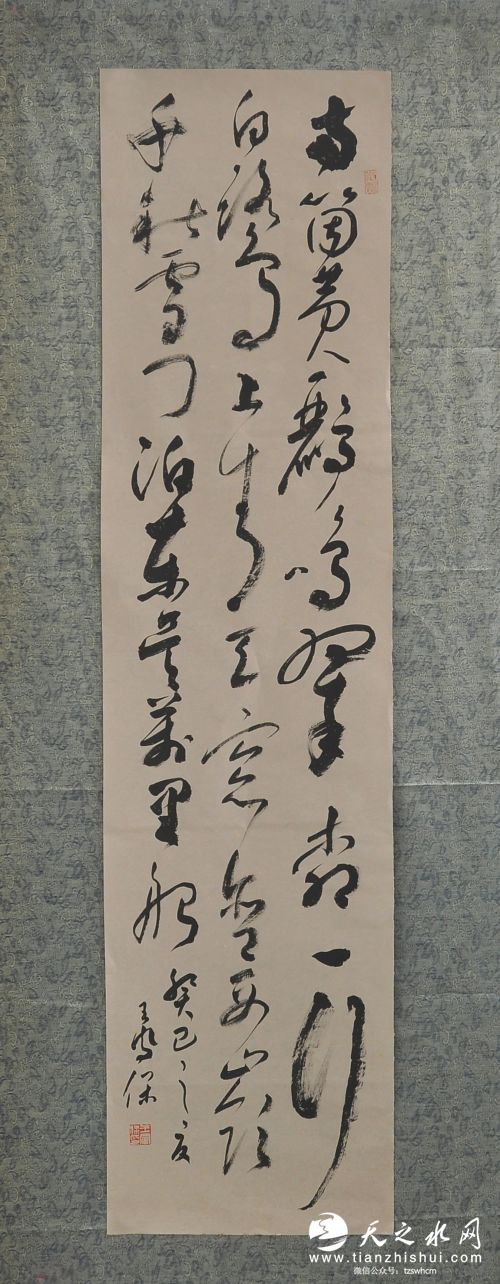 两箇黄鸝鸣翠柳一行
白鹭鸟上青天窓含西岭
千秋雪门泊东吴万里船
癸巳之夏
王
保
天之水网
www.tianzhishui.com
微信公众号：tzswhcm